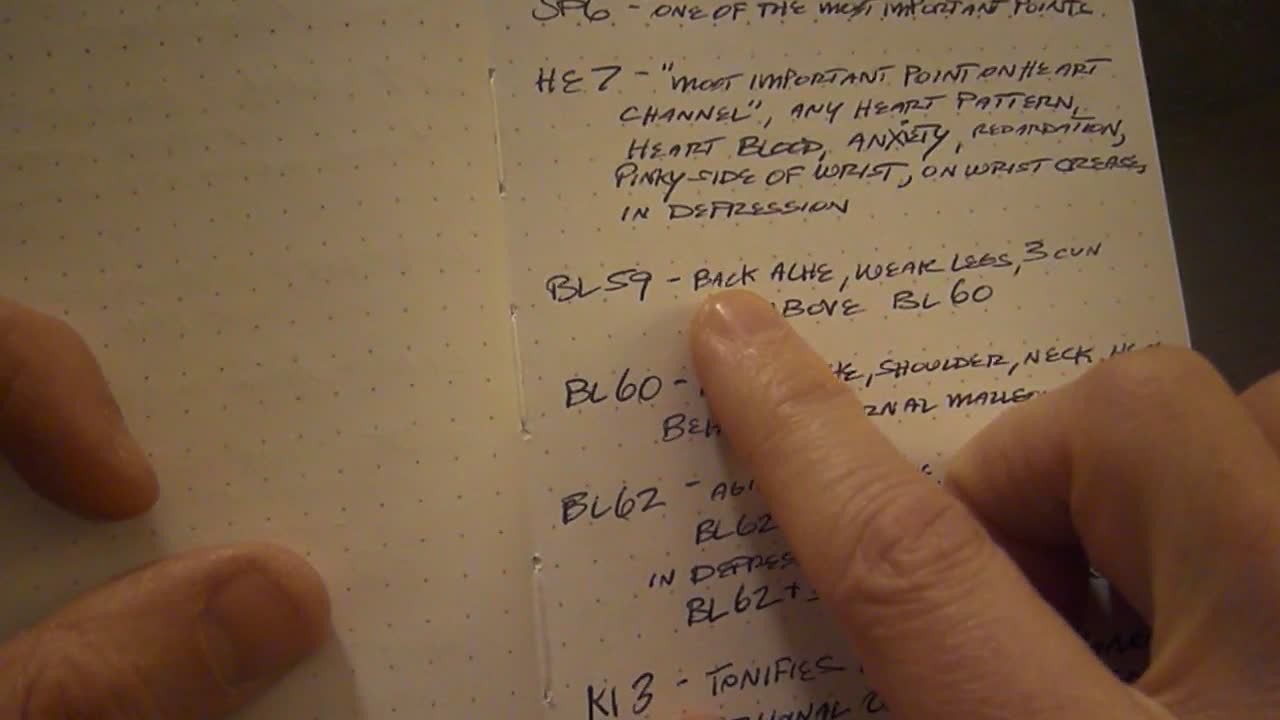 SP6 - ONE OF THE MOST IMPORTANT POINTS
HE 7 - "MOST IMPORTANT POINT ON HEART
CHANNEL", ANY HEART PATTERN,
HEART BLOOD, ANXIETY, REDARDATION,
PINKY-SIDE OF WRIST, ON WRIST CREASE,
IN DEPRESSION
BL59 - BACK ACHE, WEAK LEGS, 3 CUN
ABOVE BL60
BL60 - SHOULDER, NECK,
BL62 -
BL62
IN
BL62 +
KI 3 - TONIFIES